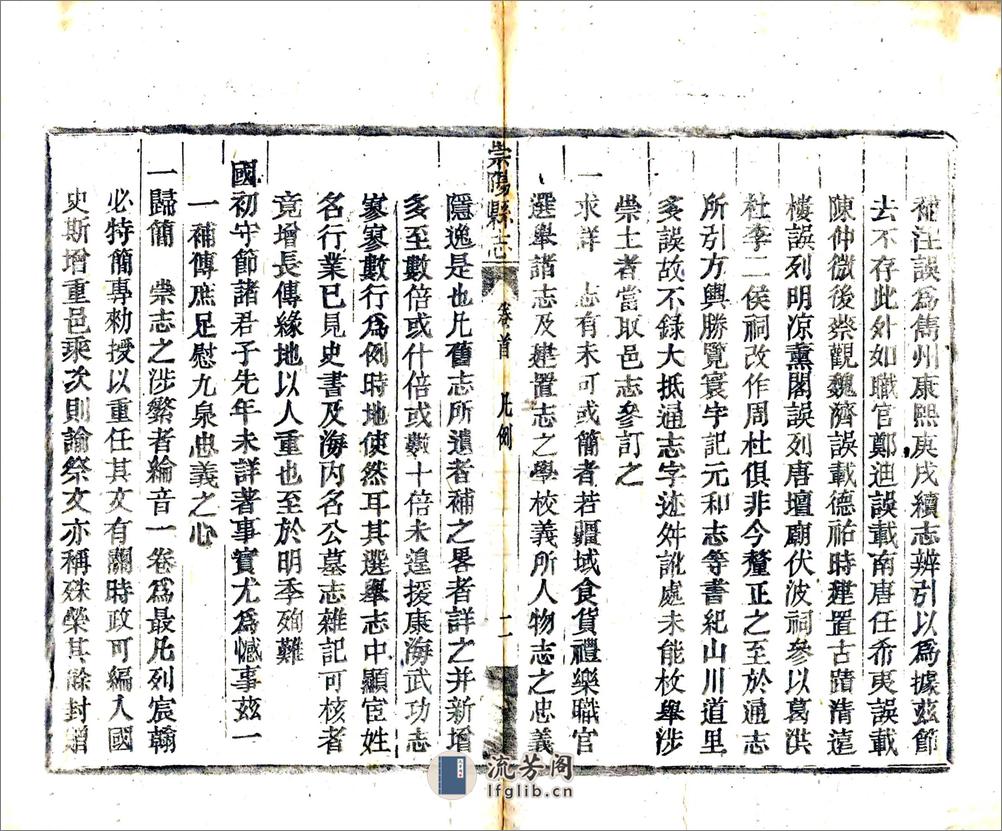 補湼誤爲雋州康熙庚戌續志辨引以爲據茲節
去不存此外如職官鄭迪誤載南唐任希夷誤載
陳仲微後蔡觀魏濟誤載德祐時建置古蹟清遠
樓誤列明凉薰閣誤列唐壇廟伏波祠參以葛洪
杜李二侯祠改作周杜俱非今釐正之至於通志
所引方輿勝覽寰宇記元和志等書紀山川道里
多誤故不錄大抵通志字迹舛訛處未能枚舉涉
崇土者當取邑志參訂之
一求詳　志有未可或簡者若疆域食貨禮樂職官
選舉諸志及建置志之學校義所人物志之忠義
崇陽縣志　卷首　凡例　二
隱逸是也凡舊志所遺者補之畧者詳之并新增
多至數倍或什倍或數十倍未遑援康海武功志
寥寥數行爲例時地使然耳其選舉志中顯宦姓
名行業已見史書及海内名公墓志雜記可核者
竟增長傳緣地以人重也至於明季殉難
國初守節諸君子先年未詳著事實尤爲憾事茲一
一補傳庶足慰九泉忠義之心
一歸簡　崇志之涉繁者綸音一卷爲最凡列宸翰
必特簡專勑授以重任其文有關時政可編入國
史斯增重邑乘次則諭祭文亦稱殊榮其餘封贈
流芳阁
lfglib.cn